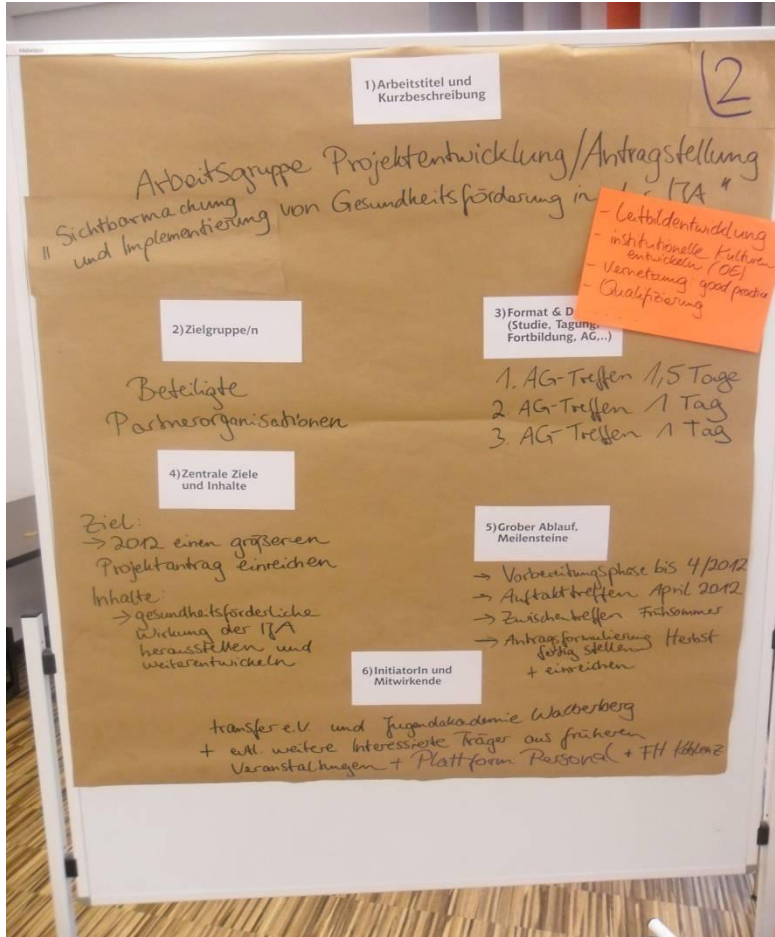 2
1) Arbeitstitel und
Kurzbeschreibung
Arbeitsgruppe Projektentwicklung/Antragstellung
"Sichtbarmachung
und Implementierung von Gesundheitsförderung in der IJA"
- Leitbildentwicklung
- institutionelle Kulturen
entwickeln (OE)
- Vernetzung: good practice
- Qualifizierung
2) Zielgruppe/n
Beteiligte
Partnerorganisationen
3) Format & D
(Studie, Tagung,
Fortbildung, AG,..)
1. AG-Treffen 1,5 Tage
2. AG-Treffen 1 Tag
3. AG-Treffen 1 Tag
4) Zentrale Ziele
und Inhalte
Ziel:
→ 2012 einen größeren
Projektantrag einreichen
Inhalte:
→ gesundheitsförderliche
Wirkung der IJA
herausstellen und
weiterentwickeln
5) Grober Ablauf,
Meilensteine
→ Vorbereitungsphase bis 4/2012
→ Auftakttreffen April 2012
→ Zwischentreffen Frühsommer
→ Antragsformulierung Herbst
fertig stellen
+ einreichen
6) InitiatorIn und
Mitwirkende
transfer e.V. und Jugendakademie Walberberg
+ evtl. weitere Interessierte Träger aus früheren
Veranstaltungen + Plattform Personal + FH Koblenz